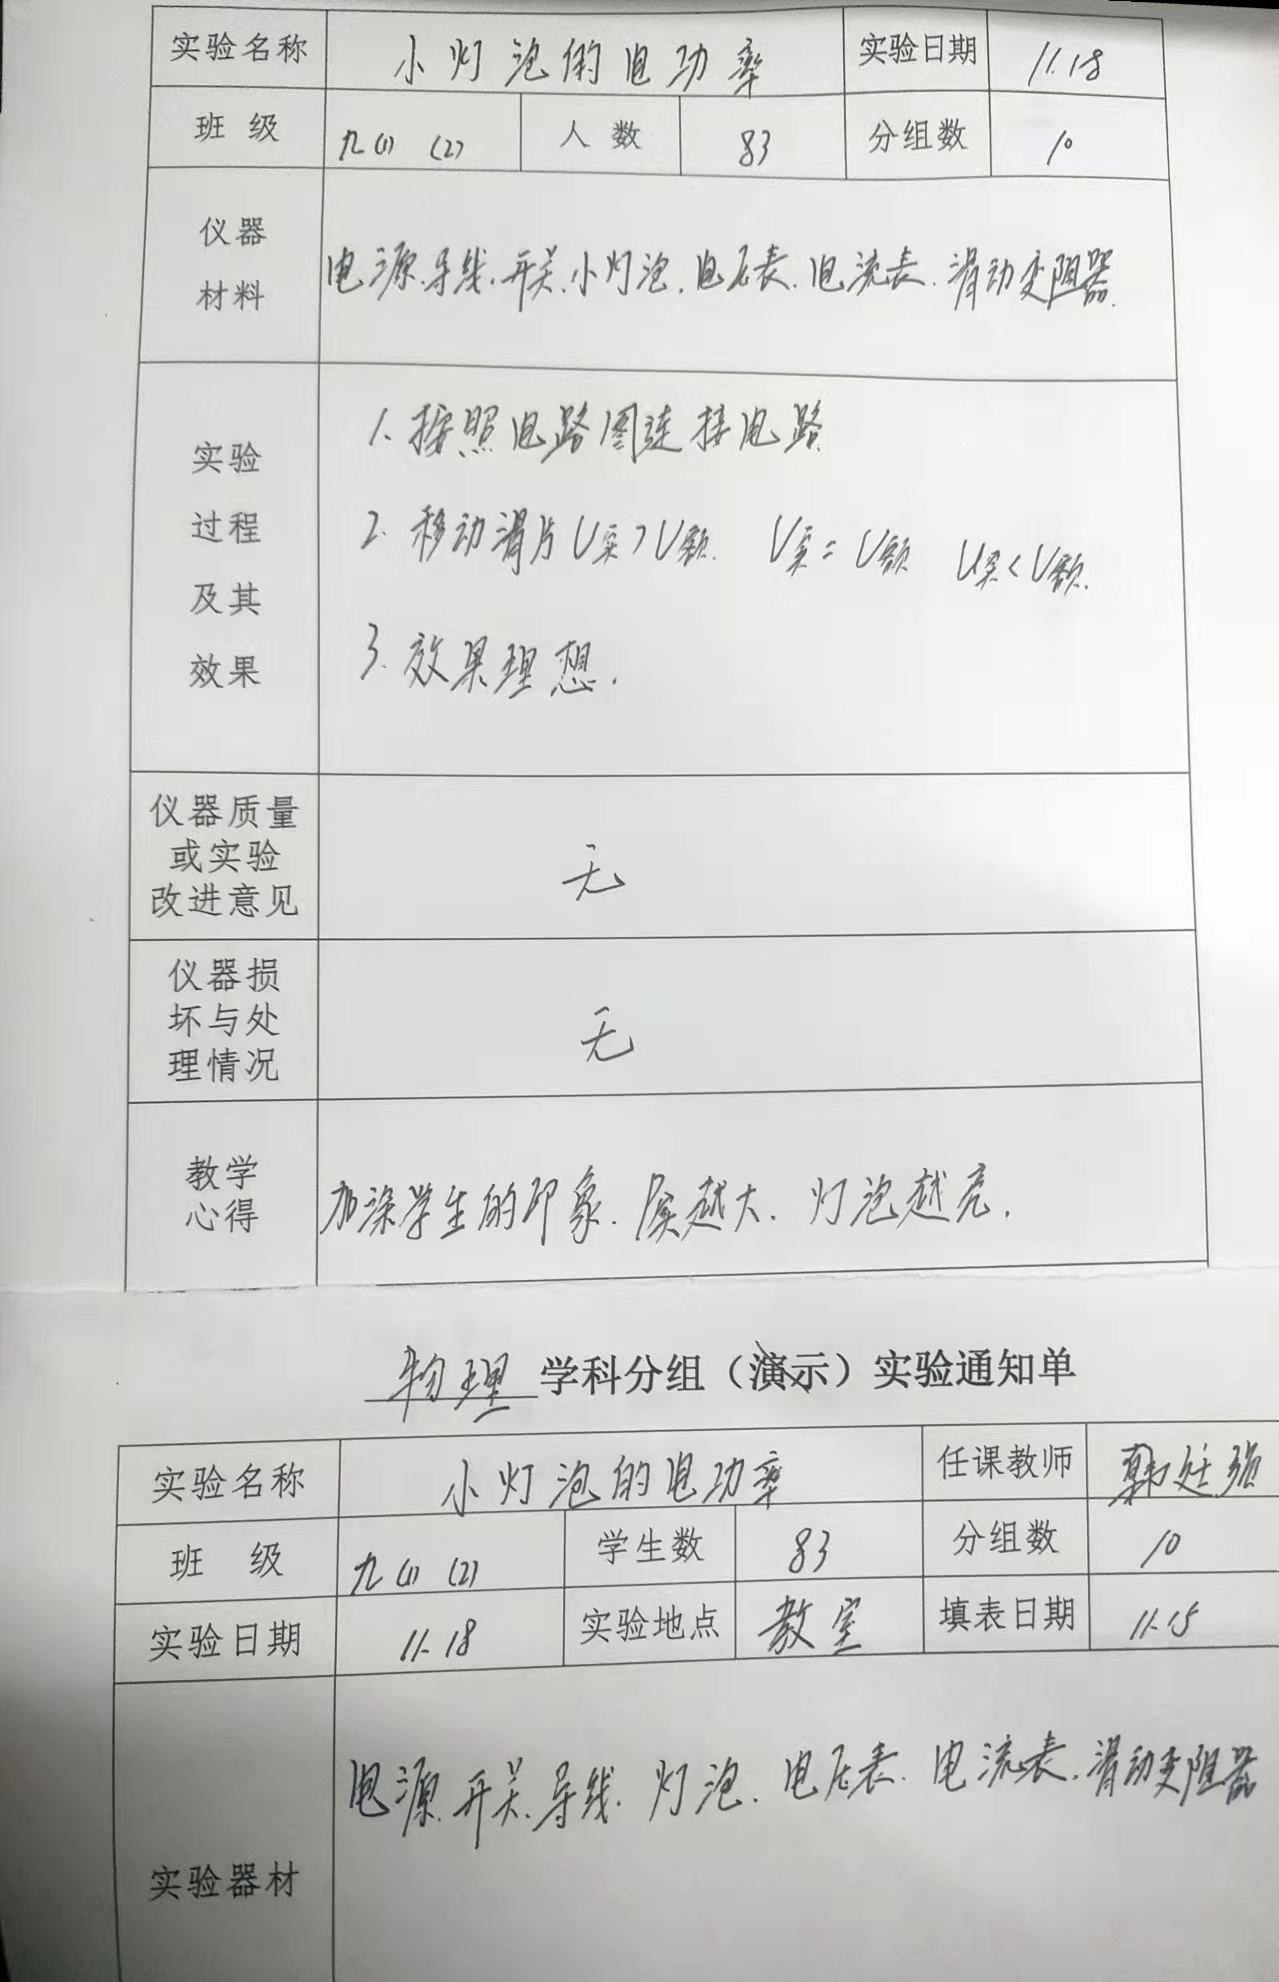 实验名称 小灯泡的电功率 实验日期 11.18
班 级 九(1) (2) 人 数 83 分组数 10
仪器
材料
电源.导线.开关.小灯泡.电压表.电流表.滑动变阻器.
实验
过程
及其
效果
1. 按照电路图连接电路
2. 移动滑片U实>U额. U实=U额 U实<U额.
3. 效果理想.
仪器质量
或实验
改进意见
无
仪器损
坏与处
理情况
无
教学
心得
加深学生的印象. P实越大. 灯泡越亮.
物理 学科分组（演示）实验通知单
实验名称 小灯泡的电功率 任课教师 韩廷强
班 级 九(1) (2) 学生数 83 分组数 10
实验日期 11.18 实验地点 教室 填表日期 11.15
实验器材
电源.开关.导线.灯泡.电压表.电流表.滑动变阻器